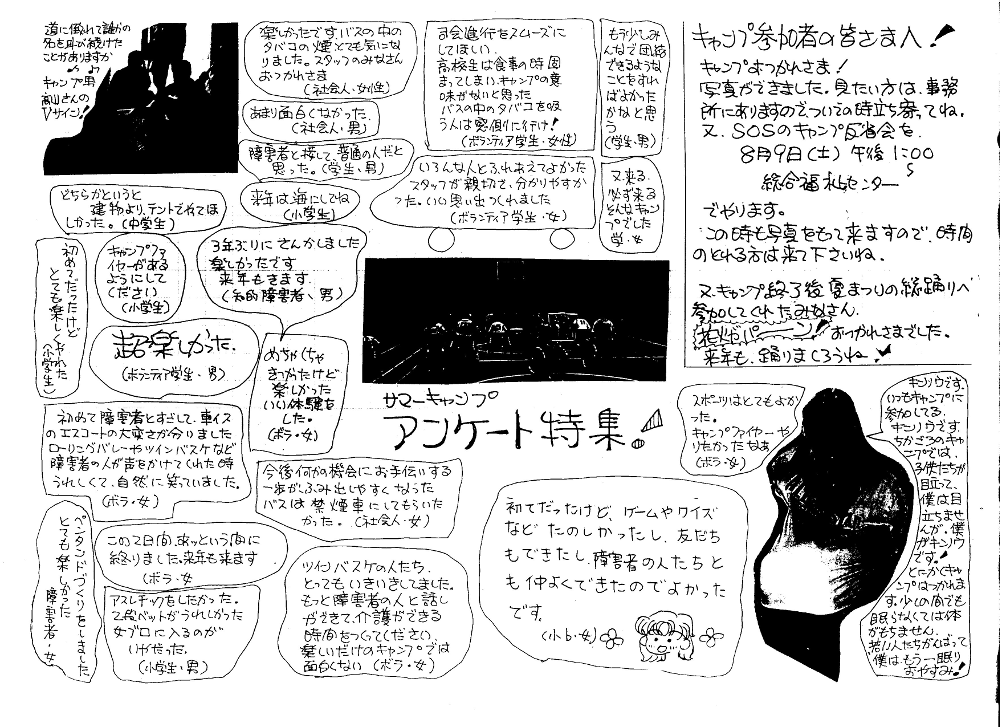 道に倒れて誰かの
名を呼び続けた
ことがありますか
キャンプ男
高山さんの
Vサイン!
楽しかったです。バスの中の
タバコの煙とても気にな
りました。スタッフのみなさん
おつかれさま
(社会人・女性)
あまり面白くなかった。
(社会人・男)
障害者と接して、普通の人だと
思った。(学生・男)
来年は海にしてね
(小学生)
司会進行をスムーズに
してほしい。
高校生は食事の時固
まってしまい、キャンプの意
味がないと思った
バスの中のタバコを吸
う人は窓側に行け!
(ボランティア学生・女性)
いろんな人とふれあえてよかった
スタッフが親切で、分かりやすか
った。いい思い出つくれました
(ボランティア学生・女)
もう少しみ
んなで団結
できるような
ことをすれ
ばよかった
かなと思
う
(学生・男)
又来る。
必ず来る
そんなキャン
プでした
学・女
キャンプ参加者の皆さま人!
キャンプおつかれさま!
写真ができました。見たい方は、事務
所にありますのでついでの時立ち寄ってね。
又、SOSのキャンプ反省会を、
8月9日(土) 午後1:00
〜
総合福祉センター
でやります。
この時も写真をもって来ますので、時間
のとれる方は来て下さいね。
又キャンプ終了後夏まつりの総踊りへ
参加してくれたみなさん。
おつかれさまでした。
来年も、踊りましょうね!
どちらかというと
建物より、テントでねてほ
しかった。(中学生)
初めてだったけど
とても楽しくやれた
(小学生)
キャンプファ
イヤーがある
ようにして
ください
(小学生)
3年ぶりにさんかしました
楽しかったです
来年もきます。
(知的障害者、男)
超楽しかった。
(ボランティア学生・男)
めちゃくちゃ
きつかたけど
楽しかった
いい体験を
した。
(ボラ・女)
サマーキャンプ
アンケート特集!
初めて障害者とすごして、車イス
のエスコートの大変さが分りました
ローリングバレーやツインバスケなど
障害者の人が声をかけてくれた時
うれしくて、自然に笑っていました。
(ボラ・女)
今後何かの機会にお手伝いする
一歩がふみ出しやすくなった
バスは禁煙車にしてもらいた
かった。(社会人・女)
ペンダントづくりをしました
とても楽しかった
障害者・女
この2日間、あっという間に
終りました。来年も来ます
(ボラ・女
アスレチックをしたかった。
2段ベットがうれしかった
女ブロに入るのが
いやだった。
(小学生・男)
ツインバスケの人たち、
とってもいきいきしてました。
もっと障害者の人と話し
ができて、介護ができる
時間をつくってください。
楽しいだけのキャンプでは
面白くない (ボラ・女)
初てだったけど、ゲームやクイズ
など たのしかったし、友だち
もできたし、障害者の人たちと
も仲よくできたのでよかった
です。
(小6・女)
スポーツはとてもよか
った。
キャンプファイヤーや
りたかったなぁ
(ボラ・女)
キンゾウです。
いつもキャンプに
参加してる、
キンゾウです
ちかごろのキャ
ンプでは、
子供たちが
目立って、
僕は目
立ちませ
んが、僕
がキンゾウ
です!
とにかくキャ
ンプはつかれま
す。少しの間でも
眠らなくては体
がもちません。
若い人たちがんばって
僕はもう一眠り
おやすみ!